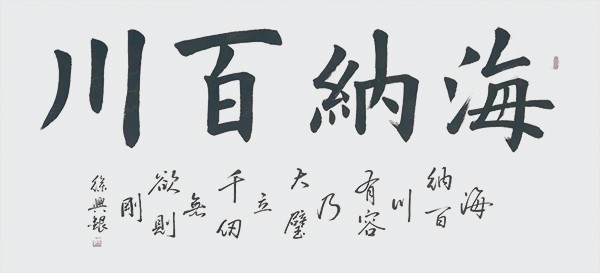 海納百川
海
納百
川
有容
乃
大壁
立
千仞
無
欲則
剛
徐興銀